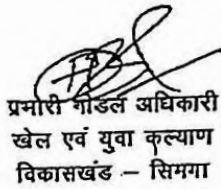 प्रभारी नोडल अधिकारी
खेल एवं युवा कल्याण
विकासखंड – सिमगा